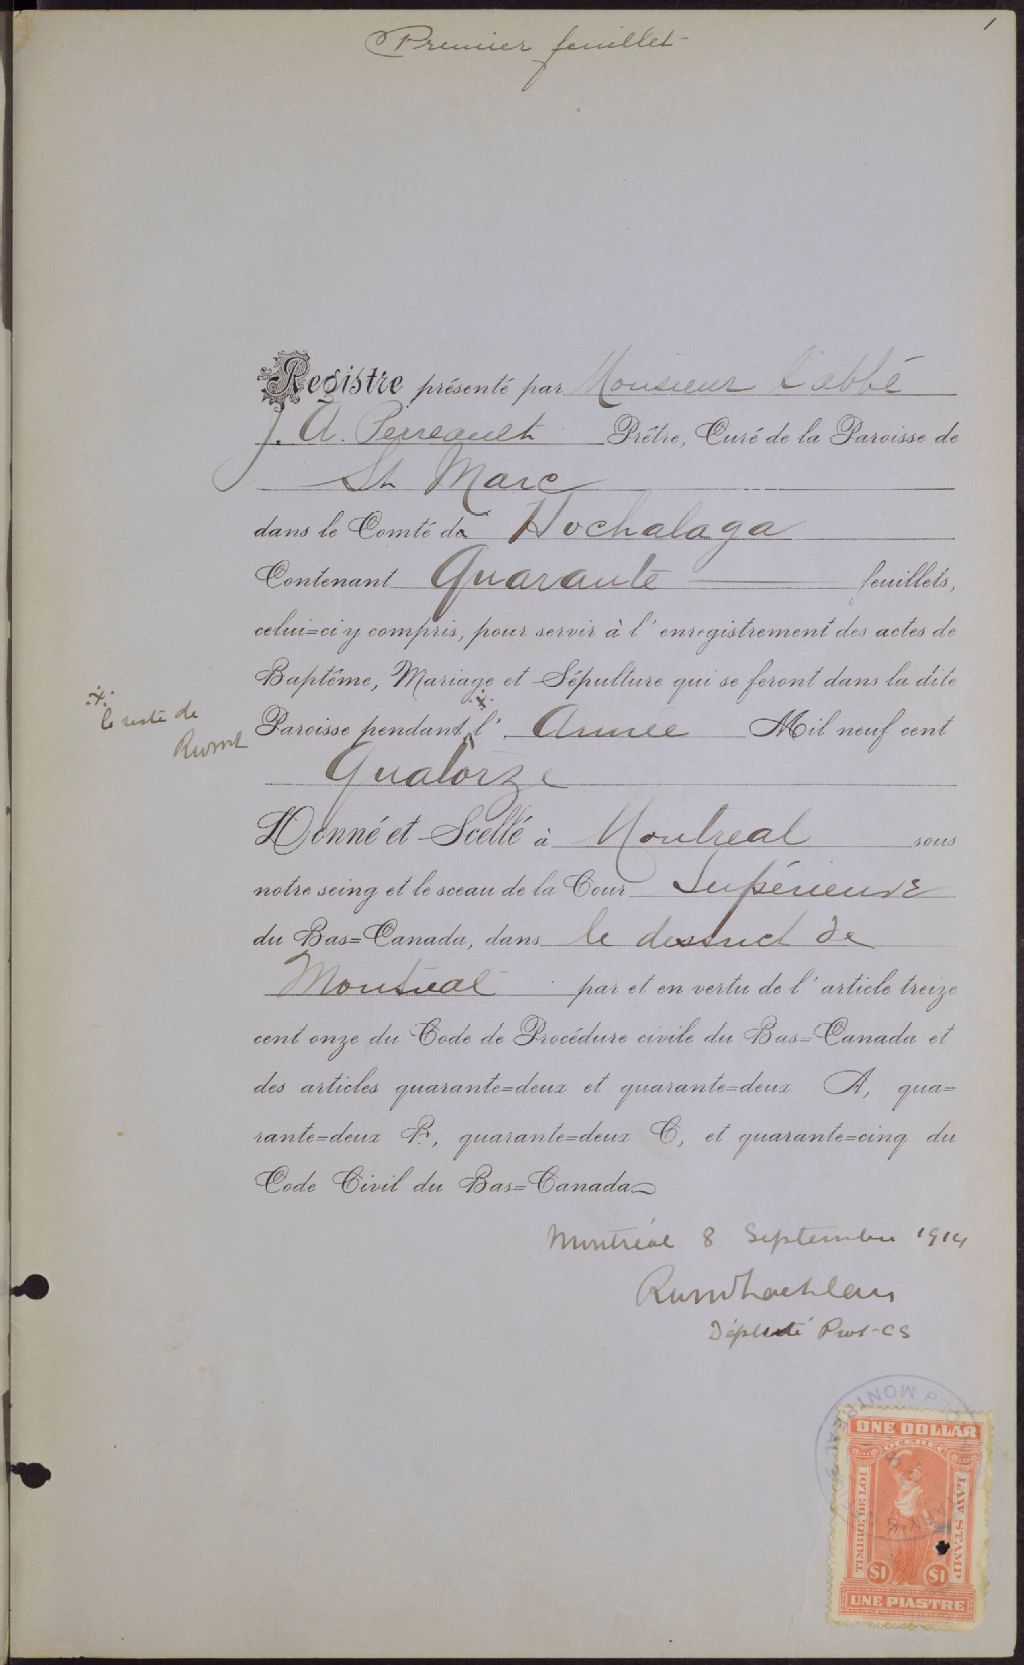 1
Premier feuillet
Registre présenté par Monsieur l'abbé
J. A. Perreault Prêtre, Curé de la Paroisse de
St Marc
dans le Comté de Hochalaga
Contenant Quarante feuillets,
celui=ci y compris, pour servir à l'enregistrement des actes de
Baptême, Mariage et Sépulture qui se feront dans la dite
le reste de
Paroisse pendant l' Année Mil neuf cent
Quatorze
Donné et Scellé à Montreal sous
notre seing et le sceau de la Cour Supérieure
du Bas=Canada, dans le district de
Montreal par et en vertu de l'article treize
cent onze du Code de Procédure civile du Bas=Canada et
des articles quarante=deux et quarante=deux A, qua=
rante=deux B, quarante=deux C, et quarante=cinq du
Code Civil du Bas=Canada
Montréal 8 Septembre 1914
Député Prot-CS
MONTREAL
ONE DOLLAR
QUEBEC
TIMBRE DE LOI
LAW STAMP
$1 $1
UNE PIASTRE